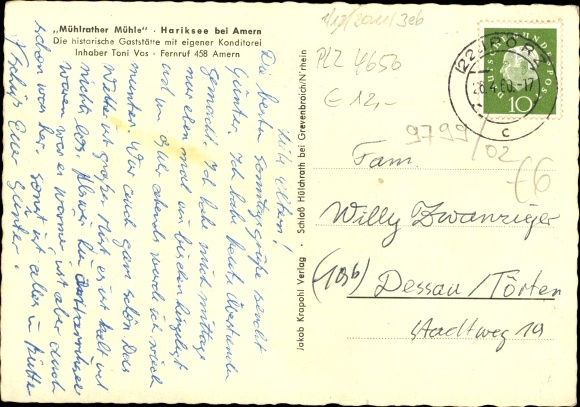 „Mühlrather Mühle" · Hariksee bei Amern
Die historische Gaststätte mit eigener Konditorei
Inhaber Toni Vos · Fernruf 458 Amern
Liebe Eltern!
Die besten Sonntagsgrüße sendet
Günter. Ich habe heute Überstunden
gemacht. Ich habe mich mittags
nur eben mal ein bißchen hingelegt
und in Abends wurde ich wieder
munter. War auch ganz schön. Das
Wetter ist groß. Nur es ist kalt und
nichts los.
waren, war es warm, ist aber auch
schon was her. Sonst ist alles in Butter
Euer Günter.
Jakob Krapohl Verlag · Schloß Hülchrath bei Grevenbroich/N'rhein
1/17/2011/366
PLZ 4650
€ 12,-
9799/02
£6
(22c) PORZ
26.4.60.-17
c
DEUTSCHE BUNDESPOST
10
Fam.
Willy Zwanziger
(19b) Dessau/Törten
Stadtweg 19